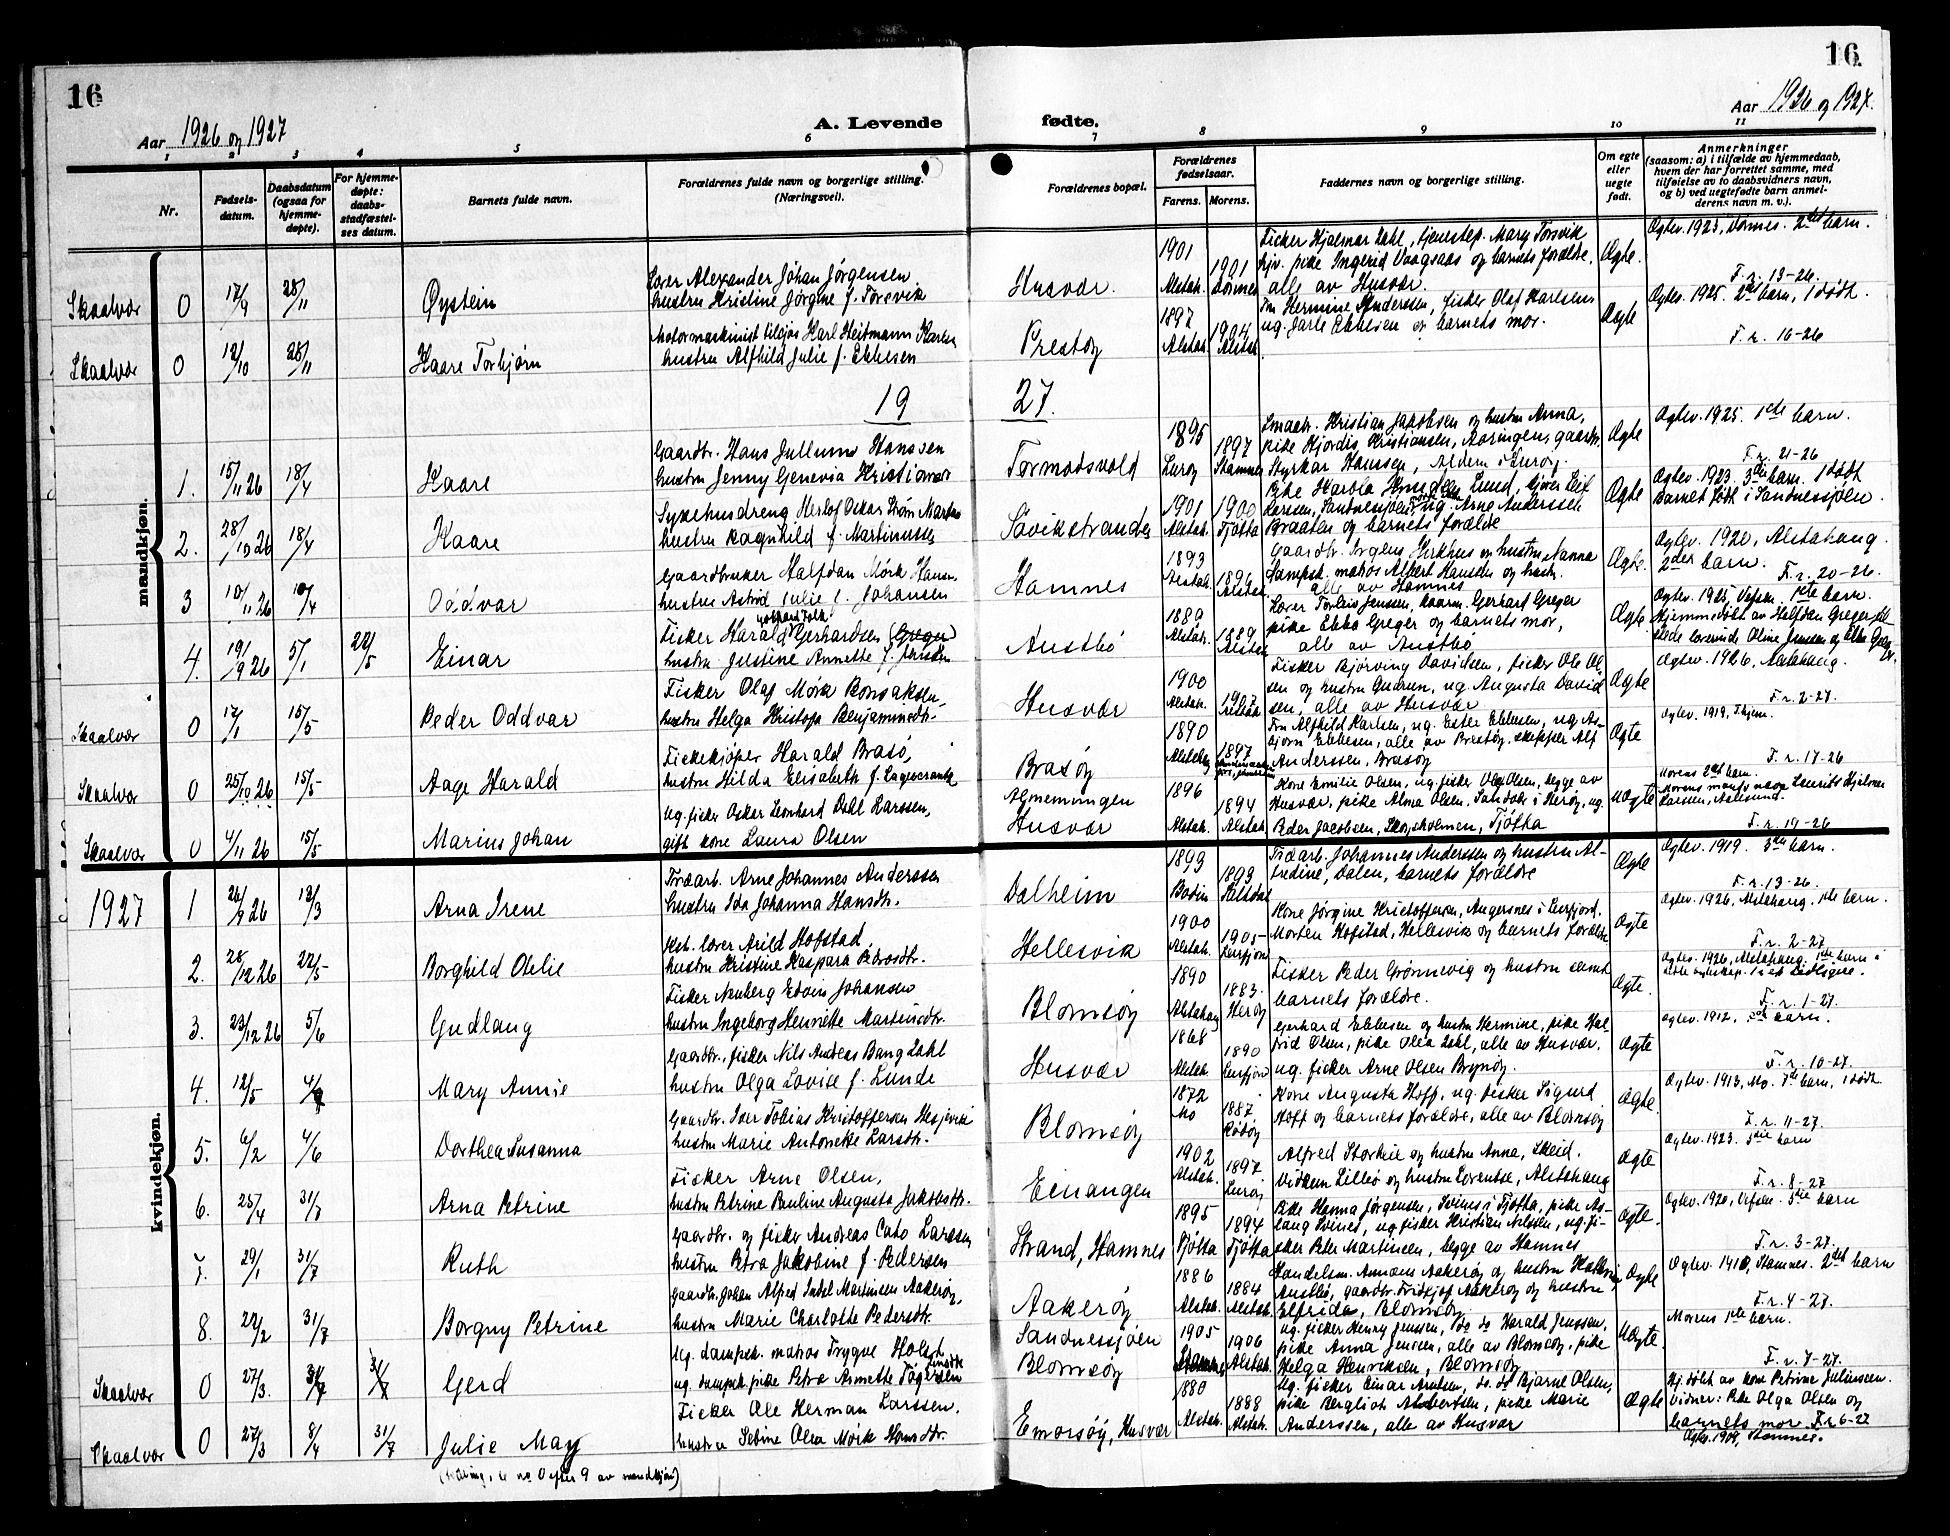 16
16.
Aar 1926 og 1927
A. Levende
fødte.
Aar 1926 og 1927.
1 2 3 4 5 6 7 8 9 10 11
Nr.
Fødsels-
datum.
Daabsdatum
(ogsaa for
hjemme-
døpte).
For hjemme-
døpte:
daabs-
stadfæstel-
ses datum.
Barnets fulde navn.
Forældrenes fulde navn og borgerlige stilling.
(Næringsvei).
Forældrenes bopæl.
Forældrenes
fødselsaar.
Farens. Morens.
Faddernes navn og borgerlige stilling.
Om egte
eller
uegte
født.
Anmerkninger
(saasom: a) i tilfælde av hjemmedaab,
hvem der har forrettet samme, med
tilføielse av to daabsvidners navn,
og b) ved uegtefødte barn anmel-
derens navn m. v.).
mandkjøn.
Skaalvær 0 17/9 28/11 Øystein
Lærer Alexander Johan Jørgensen
hustru Kristine Jørgine f. Torsvik
Husvær.
1901 Alstah. 1901 Dønnes
Fisker Hjalmar Dahl, tjenestep. Mary Torsvik
hjv. pike Ingerid Vaagsaas og barnets forældre,
alle av Husvær.
Ægte.
Ægtev. 1923, Dønnes. 2det barn.
F. r. 13-26.
Skaalvær 0 12/10 28/11 Kaare Torbjørn
hustru Alfhild Julie f. Ebbesen
Prestøy
1897 Alstah. 1904 Alstah.
Fru Hermine Anderssen, fisker Olaf Karlsen
ug. Jarle Ebbesen og barnets mor.
Ægte
Ægtev. 1925. 2det barn, 1 død.
F. r. 16-26
19 27.
1. 15/11 26 18/4 Kaare
Gaardbr. Hans Jullum Hanssen
hustru Jenny Genevia Kristians
Tormodsvold
1895 Lurøy 1897 Stamnes
Smaabr. Kristian Jakobsen og hustru Anna,
pike Hjørdis Kristiansen, Aaringen, gaardbr.
Styrkar Hanssen, Aldern i Lurøy.
Ægte
Ægtev. 1925. 1ste barn.
F. r. 21-26
2. 28/10 26 18/4 Kaare
Sykehusdreng Herlof Oskar Strøm
hustru Ragnhild f. Martinussen
Søvikstranden
1901 Alstah. 1900 Tjøtta
Larssen, Sandnessjøen, ug. Arne Anderssen
Braaten og barnets forældre
Ægte
Ægtev. 1923. 3die barn. 1 død
Barnet født i Sandnessjøen.
3 10/11 26 18/4 Oddvar
Gaardbruker Halfdan Mørk Hansen
hustru Astrid Julie f. Johansen
Hamnes
1893 Alstah. 1896 Alstah.
Gaardbr. Jørgen Kirkhus og hustru Nanna
Dampsk. matros Albert Hansen og hustr.
alle av Hamnes
Ægte.
Ægtev. 1920, Alstahaug.
2der barn.
F. r. 20-26.
4. 19/9 26 5/1 22/5 Einar
Fisker Harald Gerhardsen (Greger)
hustru Justine Annette f. Jenssen
Austbø
1889 Alstah. 1889 Alstah.
Lærer Torleis Jenssen, kaarm. Gerhard Greger
pike Ebba Greger og barnets mor,
alle av Austbø
Ægte.
Ægtev. 1925, Vefsn. 1ste barn.
Hjemmedøbt av Halfdan Greger
Skaalvær 0 17/1 15/5 Peder Oddvar
Fisker Olaf Mørk Bonsaksen,
hustru Helga Kristofa Benjaminsdtr.
Husvær
1900 Alstah. 1907
Fisker Bjørving Davidsen, fisker Ole Ol-
sen og hustru Gudrun, ug. Augusta David
sen, alle av Husvær
Ægte
Ægtev. 1926, Alstahaug.
F. r. 2-27.
Skaalvær 0 25/10 26 15/5 Aage Harald
Fiskekjøper Harald Brasø,
hustru Hilda Elisabeth f. Lagesrantz
Brasøy
1890 Alstahg 1897
Fru Alfhild Karlsen, ug. Ester Ebbesen, ug. As-
bjørn Ebbesen, alle av Prestøy, skipper Alf
Anderssen, Brasøy
Ægte
Ægtev. 1919, Thjem.
F. r. 17-26
Skaalvær 0 4/11 26 15/5 Marius Johan
Ug. fisker Oskar Leonhard Dahl Larssen,
gift kone Laura Olsen
Husvær
1896 Alstah. 1894 Alstah.
Kone Emilie Olsen, ug. fisker Olaf Olsen, begge av
Husvær, pike Alma Olsen, Sandvær i Herøy, ug.
Peder Jacobsen, Skogsholmen, Tjøtta
uægte
Morens 2det barn.
Larsen, Aalesund.
F. r. 19-26
1927
kvindekjøn.
1 26/9 26 13/3 Arna Irene
Træarb. Arne Johannes Anderssen
hustru Ida Johanna Hansdtr.
Dalheim
1899 Bodin 1893
Træarb. Johannes Anderssen og hustru Al-
fredine, Dalen, barnets forældre
Ægte
Ægtev. 1919. 3die barn.
F. r. 13-26.
2. 28/12 26 22/5 Borghild Otelie
lærer Arild Hofstad
hustru Kristine Kaspara Pedersdtr.
Hellesvik
1900 Alstah. 1905 Leirfjord
Kone Jørgine Kristoffersen, Angersnes i Leirfjord.
Morten Hofstad, Hellesvik og barnets forældre
Ægte
Ægtev. 1926, Alstahaug. 1ste barn.
F. r. 2-27
3. 23/12 26 5/6 Gudlaug
Fisker Nauberg Edvin Johansen
hustru Ingeborg Henriette Martinsdtr.
Blomsøy
1890 Alstahaug 1883. Herøy
Fisker Peder Grønnevig og hustru samt
barnets forældre.
Ægte.
Ægtev. 1926, Alstahaug. 1ste barn i
F. r. 1-27.
4. 12/5 Mary Annie
Gaardbr., fisker Nils Andreas Bang Dahl
hustru Olga Lovise f. Lunde
Husvær
1868 Alstah. 1890 Leirfjord
Gerhard Ebbesen og hustru Hermine, pike Hal-
frid Olsen, pike Olea Dahl, alle av Husvær.
ug. fisker Arne Olsen Brynøy.
Ægte
Ægtev. 1912, barn.
F. r. 10-27.
5. 6/2 4/6 Dorthea Susanna
Gaardbr. Iver Tobias Kristoffersen
hustru Marie Antonette Larsdtr.
Blomsøy
1872 Mo 1887 Rødøy
Kone Augusta Hoff, ug. fisker Sigurd
Hoff og barnets forældre, alle av Blomsøy
ægte.
Ægtev. 1913, Mo. 7de barn, 1 død.
F. r. 11-27.
6. 25/4 31/7 Arna Petrine
Fisker Arne Olsen,
hustru Petrine Pauline Augusta Jakobsdtr.
Einangen
1902 Alstah. 1897 Lurøy
Alfred Storheie og hustru Anna, Skeid.
Vidkun Lilleø og hustru Lorentse, Alstahaug
Ægte
Ægtev. 1923. 3die barn
F. r. 8-27
7. 29/1 31/7 Ruth
Gaardbr. og fisker Andreas Cato Larssen
hustru Petra Jakobine f. Pedersen
Strand, Hamnes
1895 Tjøtta 1894 Tjøtta
Pike Hanna Jørgensen, Svines i Tjøtta, pike As-
laug Svines, ug. fisker Kristian Nilssen, ug. fi-
sker Peter Martinsen, begge av Hamnes
Ægte.
Ægtev. 1920, Vefsn. 3die barn
F. r. 3-27.
8. 22/2 31/7 Borgny Petrine
Gaardbr. Johan Alfred Indal Martinsen Aakerøy,
hustru Marie Charlotte Pedersdtr.
Aakerøy
1886 Alstah. 1884 Alstah.
Handelsm. Annæus Aakerøy og hustru
Austbø, gaardbr. Fridtjof Aakerøy og hustru
Elfrida, Blomsøy.
Ægte
Ægtev. 1910, Stamnes. 2det barn
F. r. 4-27.
Skaalvær 0 27/3. 31/7 Gerd
Ug. dampsk. matros Trygve Holst
ug. pike Petra Annette Tøgersen
Sandnessjøen
Blomsøy
1905 Stamnes 1906 Alstah.
ug. fisker Henry Jenssen, do do Harald Jenssen,
pike Anna Jensen, alle av Blomsøy, pike
Helga Henriksen, Blomsøy
Uægte
Morens 1ste barn.
F. r. 7-27.
Skaalvær 0 27/3 8/4 31/7 Julie May
Fisker Ole Herman Larssen.
hustru Sebine Olea Mørk Hansdtr.
Emarsøy, Husvær
1880 Alstah. 1888 Alstah.
Ug. fisker Einar Arntsen, do. do Bjarne Olsen,
pike Bergliot Albertsen, pike Marie
Anderssen, alle av Husvær
Ægte
Hj. døbt av kone Petrine Juliussen.
Vidner: Pike Olga Olsen og
barnets mor. F. r. 6-27
Ægtev. 1909, Stamnes.